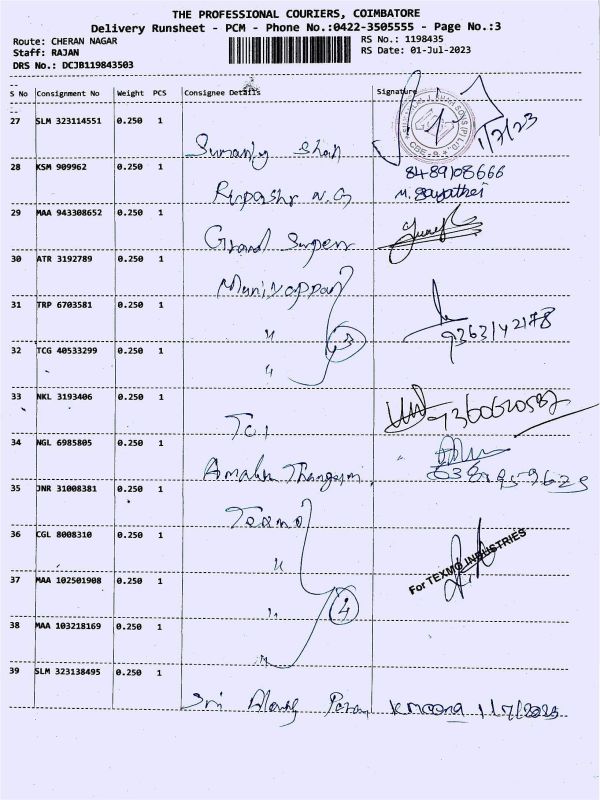 THE PROFESSIONAL COURIERS, COIMBATORE
Delivery Runsheet - PCM - Phone No.:0422-3505555 - Page No.:3
Route: CHERAN NAGAR
RS No.: 1198435
Staff: RAJAN
RS Date: 01-Jul-2023
DRS No.: DCJB119843503
S No Consignment No Weight PCS Consignee Details Signature
27 SLM 323114551 0.250 1
1/7/23
28 KSM 909962 0.250 1
8489108666
M. Gayathri
29 MAA 943308652 0.250 1
Grand
30 ATR 3192789 0.250 1
Muniyappan
31 TRP 6703581 0.250 1
"
3
32 TCG 40533299 0.250 1
"
33 NKL 3193406 0.250 1
34 NGL 6985805 0.250 1
35 JNR 31008381 0.250 1
Texmo
36 CGL 8008310 0.250 1
"
For TEXMO INDUSTRIES
37 MAA 102501908 0.250 1
"
4
38 MAA 103218169 0.250 1
"
39 SLM 323138495 0.250 1
Sri
1/7/2023